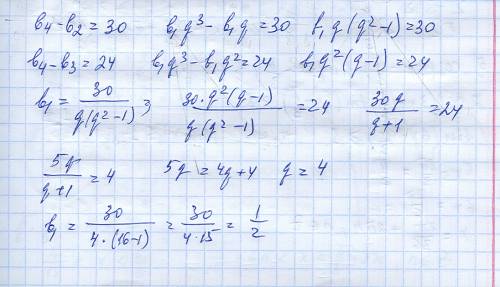 b₄-b₂=30 b₁q³-b₁q=30 b₁q(q²-1)=30
b₄-b₃=24 b₁q³-b₁q²=24 b₁q²(q-1)=24
b₁=30/(q(q²-1)); 30·q²(q-1)/(q(q²-1))=24 30q/(q+1)=24
5q/(q+1)=4 5q=4q+4 q=4
b₁=30/(4·(16-1))=30/(4·15)=1/2